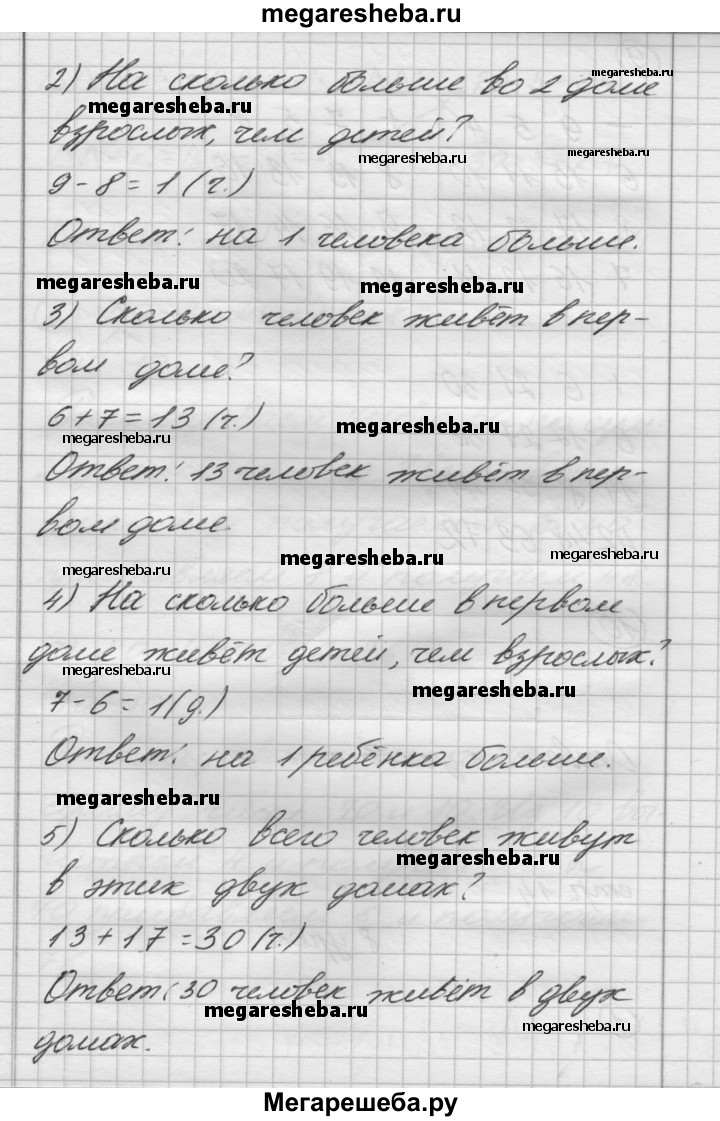 megaresheba.ru
megaresheba.ru
2) На сколько больше во 2 доме
megaresheba.ru
взрослых, чем детей?
megaresheba.ru
megaresheba.ru
9-8=1(ч.)
Ответ: на 1 человека больше.
megaresheba.ru
megaresheba.ru
3) Сколько человек живёт в пер-
вом доме?
6+7=13(ч.)
megaresheba.ru
megaresheba.ru
Ответ: 13 человек живёт в пер-
вом доме.
megaresheba.ru
megaresheba.ru
megaresheba.ru
4) На сколько больше в первом
доме живёт детей, чем взрослых?
megaresheba.ru
megaresheba.ru
7-6=1(д.)
Ответ: на 1 ребёнка больше.
megaresheba.ru
5) Сколько всего человек живут
megaresheba.ru
в этих двух домах?
13+17=30(ч.)
Ответ: 30 человек живёт в двух
megaresheba.ru
megaresheba.ru
домах.
Мегарешеба.ру